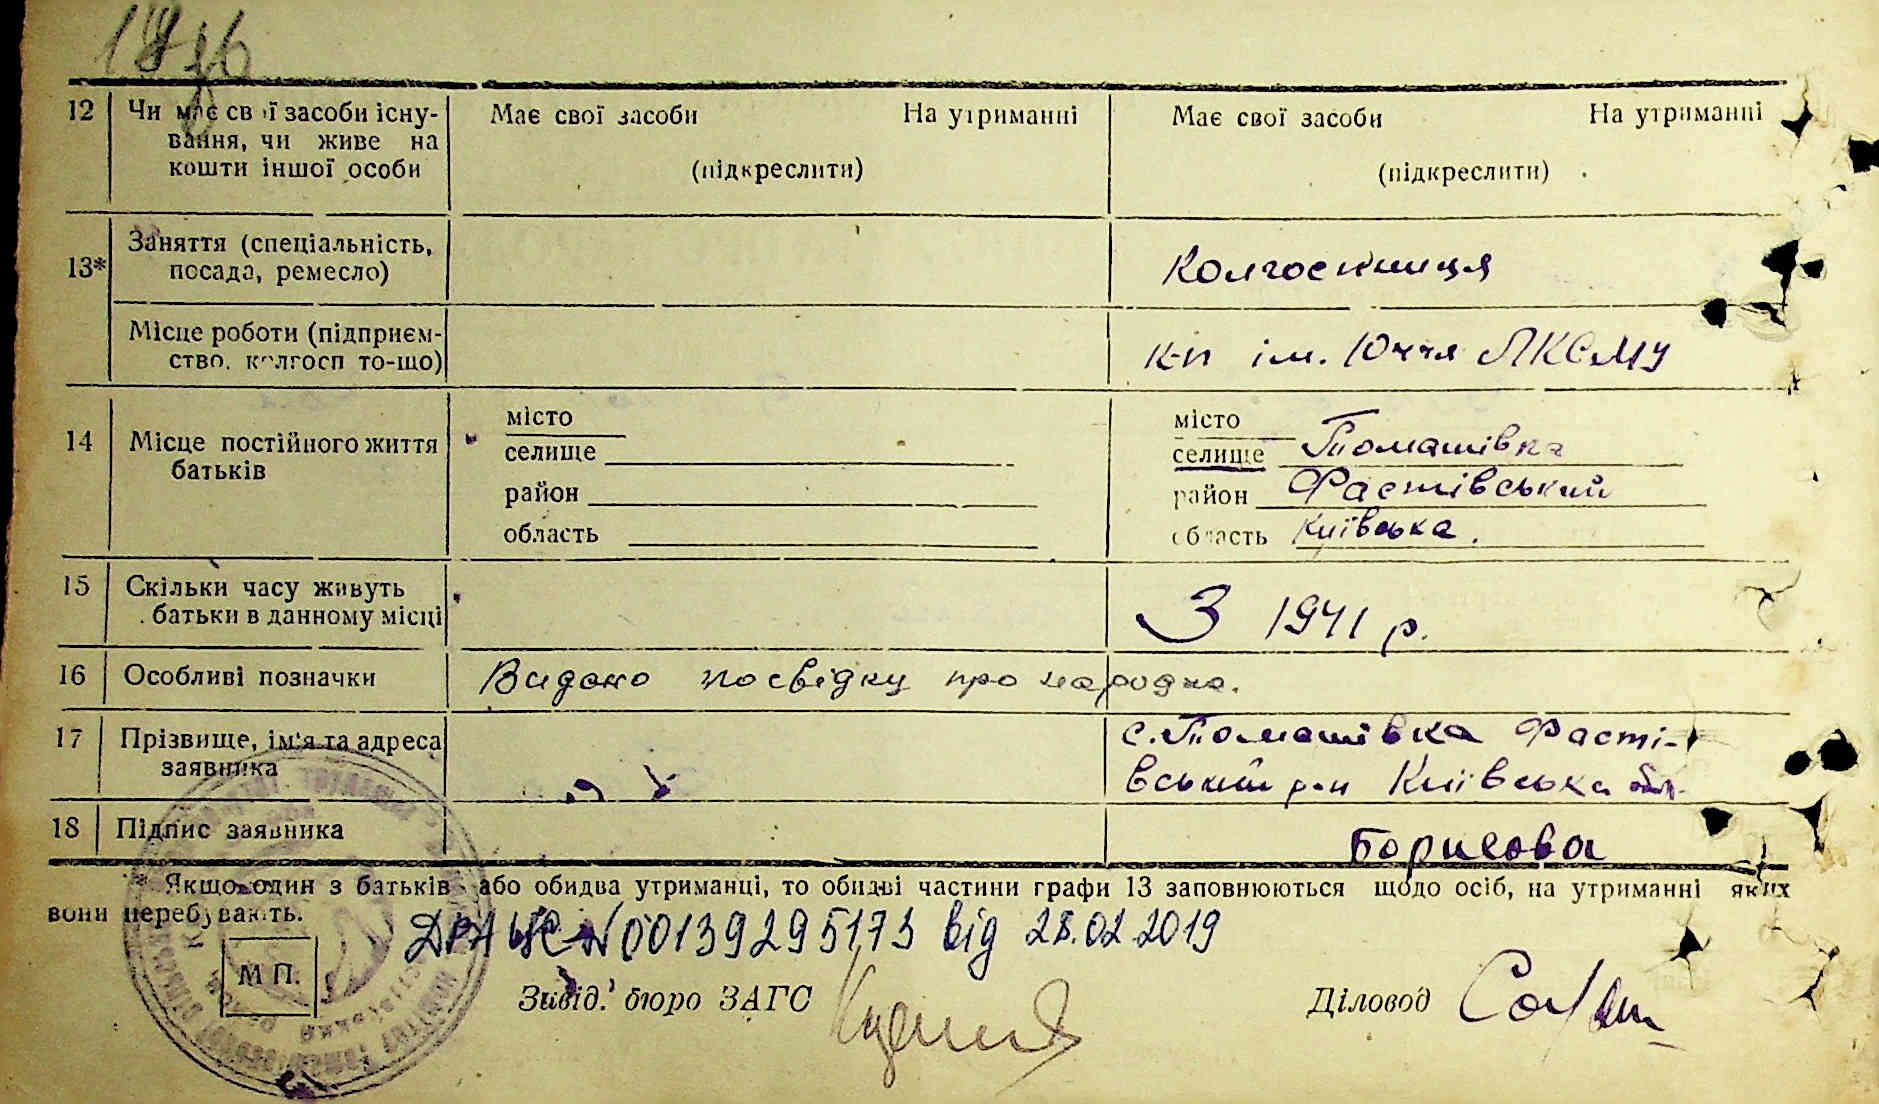 12 Чи має свої засоби існу-
вання, чи живе на
кошти іншої особи
Має свої засоби На утриманні
(підкреслити)
Має свої засоби На утриманні
(підкреслити)
13* Заняття (спеціальність,
посада, ремесло)
Колгоспниця
Місце роботи (підприєм-
ство, колгосп то-що)
к-п ім. 10ччя ЛКСМУ
14 Місце постійного життя
батьків
місто
селище
район
область
місто
селище Томашівка
район Фастівський
область Київська.
15 Скільки часу живуть
батьки в данному місці
З 1941 р.
16 Особливі позначки
Видано посвідку про народж.
17 Прізвище, ім'я та адреса
заявника
с. Томашівка Фасті-
вський р-н Київська обл.
18 Підпис заявника
Борисова
* Якщо один з батьків або обидва утриманці, то обидві частини графи 13 заповнюються щодо осіб, на утриманні яких
вони перебувають.
ДРАЦС №00139295173 від 28.02.2019
М П.
Завід. бюро ЗАГС
Діловод